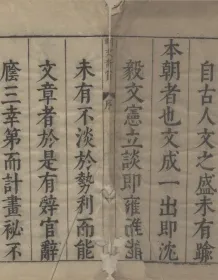 自古人文之盛未有踰
本朝者也文成一出即沈
毅文憲立談即雍
序
未有不淡於勢利而能
文章者於是有官辭
三幸第而計畫秘不